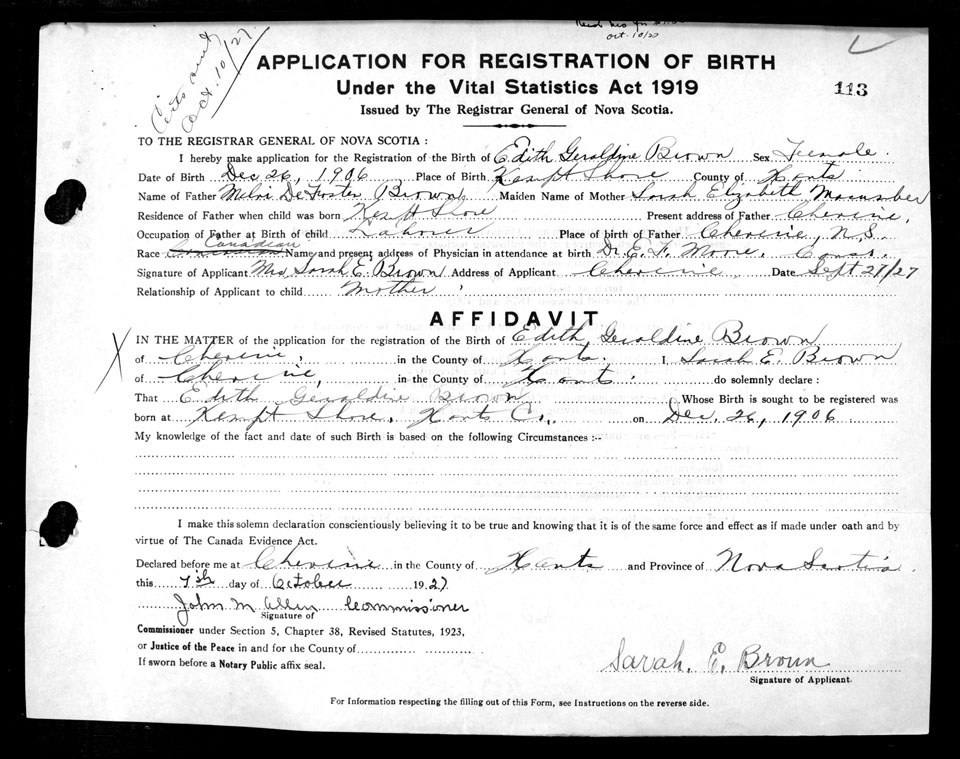 oct. 10/27
Oct. 10/27
APPLICATION FOR REGISTRATION OF BIRTH
Under the Vital Statistics Act 1919
113
Issued by The Registrar General of Nova Scotia.
TO THE REGISTRAR GENERAL OF NOVA SCOTIA :
I hereby make application for the Registration of the Birth of Edith Geraldine Brown Sex Female.
Date of Birth Dec 26, 1906 Place of Birth Kempt Shore County of Hants
Name of Father DeFoster Brown Maiden Name of Mother Sarah Elizabeth Macumber
Residence of Father when child was born Kempt Shore Present address of Father Cheverie,
Occupation of Father at Birth of child Laborer Place of birth of Father Cheverie, N.S.
Race Canadian Name and present address of Physician in attendance at birth Dr. E. F. Moore,
Signature of Applicant Mrs. Sarah E. Brown Address of Applicant Cheverie Date Sept 27/27
Relationship of Applicant to child Mother
AFFIDAVIT
X IN THE MATTER of the application for the registration of the Birth of Edith Geraldine Brown
of Cheverie, in the County of Hants. I, Sarah E. Brown
of Cheverie, in the County of Hants. do solemnly declare :
That Edith Geraldine Brown Whose Birth is sought to be registered was
born at Kempt Shore, Hants C., on Dec. 26, 1906
My knowledge of the fact and date of such Birth is based on the following Circumstances :--
I make this solemn declaration conscientiously believing it to be true and knowing that it is of the same force and effect as if made under oath and by
virtue of The Canada Evidence Act.
Declared before me at Cheverie in the County of Hants and Province of Nova Scotia.
this 7th day of October 1927
John M Allen Commissioner
Signature of
Commissioner under Section 5, Chapter 38, Revised Statutes, 1923,
or Justice of the Peace in and for the County of
If sworn before a Notary Public affix seal.
Sarah. E. Brown
Signature of Applicant.
For Information respecting the filling out of this Form, see Instructions on the reverse side.